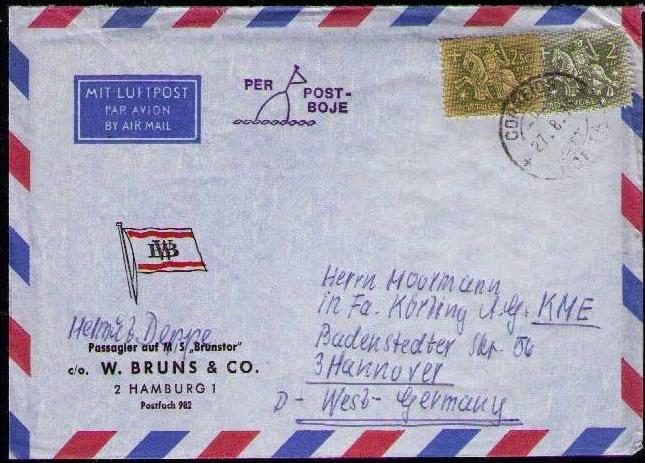 MIT LUFTPOST
PAR AVION
BY AIR MAIL
PER POST-
BOJE
CORREIO
27.8.
Herrn Moormann
in Fa. Körting A.G. KME
Badenstedter Str. 56
3 Hannover
D - West-Germany
Passagier auf M/S „Brunstor"
c/o. W. BRUNS & CO.
2 HAMBURG 1
Postfach 982